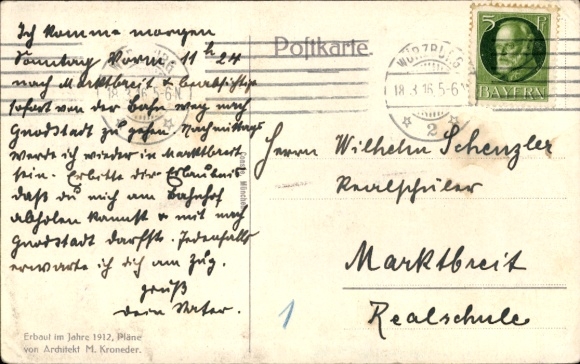 Ich komme morgen
Sonntag Vorm. 11 h 24
nach Marktbreit & beabsichtige
sofort von der Bahn weg nach
Gnodstadt zu gehen. Nachmittags
werde ich wieder in Marktbreit
sein. Erbitte dir Erlaubnis
daß du mich am Bahnhof
abholen kannst & mit nach
Gnodstadt darfst. Jedenfalls
erwarte ich dich am Zug.
Gruß
dein Vater.
Erbaut im Jahre 1912, Pläne
von Architekt M. Kroneder.
Postkarte
WÜRZBURG
18.3.16.5-6N
2
18.3.16.5-6N
5 Pf
BAYERN
Herrn Wilhelm Schenzler
Realschüler
Marktbreit
Realschule
1